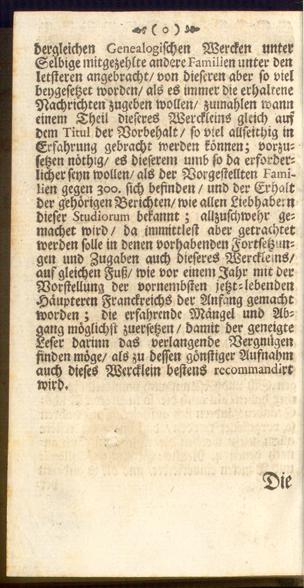 (o)
dergleichen Genealogischen Wercken unter
Selbige mitgezehlte andere Familien unter den
letsteren angebracht/ von dieseren aber so viel
beygesetzet worden/ als es immer die erhaltene
Nachrichten zugeben wollen/ zumahlen wann
einem Theil dieseres Werckleins gleich auf
dem Titul der Vorbehalt/ so viel allseithig in
Erfahrung gebracht werden können; vorzu-
setzen nöthig/ es dieserem umb so da erforder-
licher seyn wollen/ als der Vorgestellten Fami-
lien gegen 300. sich befinden/ und der Erhalt
der gehörigen Berichten/ wie allen Liebhabern
dieser Studiorum bekannt; allzuschwehr ge-
machet wird/ da immittlest aber getrachtet
werden solle in denen vorhabenden Fortsetzun-
gen und Zugaben auch dieseres Werckleins/
auf gleichen Fuß/ wie vor einem Jahr mit der
Vorstellung der vornembsten jetzt-lebenden
Häupteren Franckreichs der Anfang gemacht
worden; die erfahrende Mängel und Ab-
gang möglichst zuersetzen/ damit der geneigte
Leser darinn das verlangende Vergnügen
finden möge/ als zu dessen gönstiger Aufnahm
auch dieses Wercklein bestens recommandirt
wird.
Die